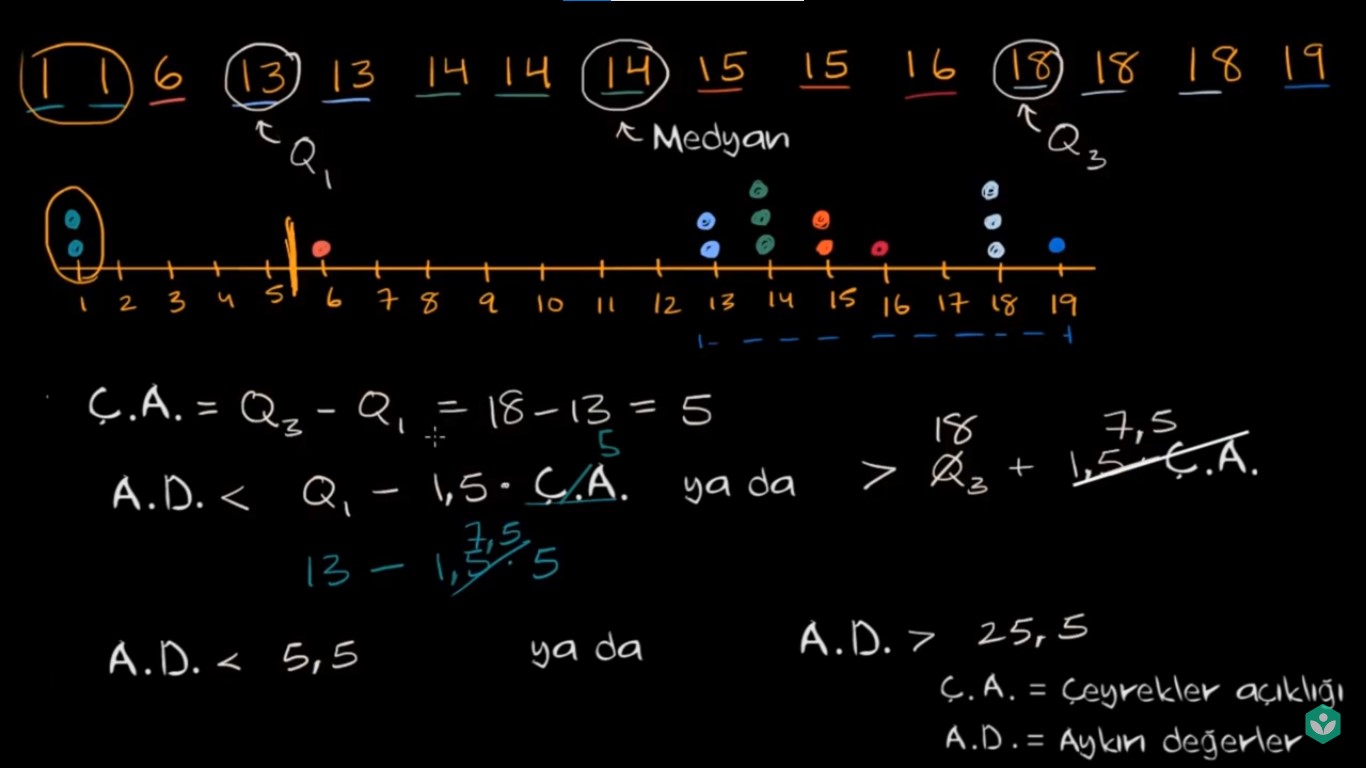 1 1 6 13 13 14 14 14 15 15 16 18 18 18 19
Q1 Medyan Q3
1 2 3 4 5 6 7 8 9 10 11 12 13 14 15 16 17 18 19
Ç.A. = Q3 - Q1 = 18 - 13 = 5
5 18 7,5
A.D. < Q1 - 1,5 · Ç.A. ya da > Q3 + 1,5 · Ç.A.
7,5
13 - 1,5 · 5
A.D. < 5,5 ya da A.D. > 25,5
Ç.A. = Çeyrekler açıklığı
A.D. = Aykırı değerler